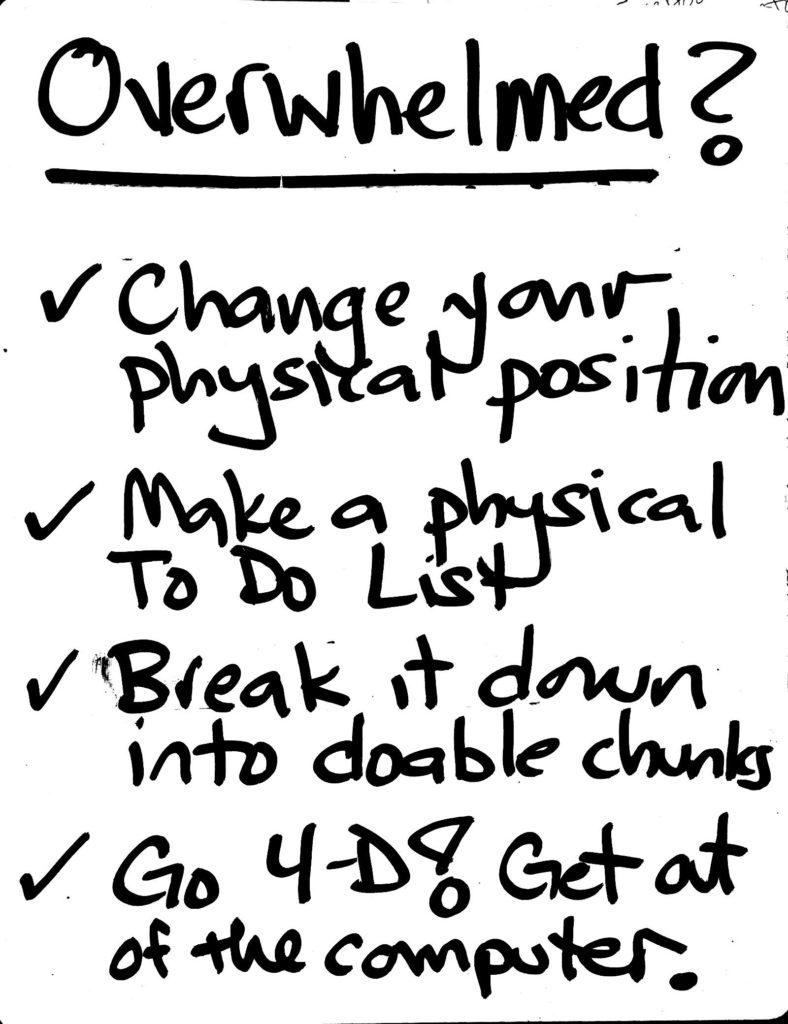 Overwhelmed?
✓ Change your
physical position
✓ Make a physical
To Do List
✓ Break it down
into doable chunks
✓ Go 4-D! Get out
of the computer.